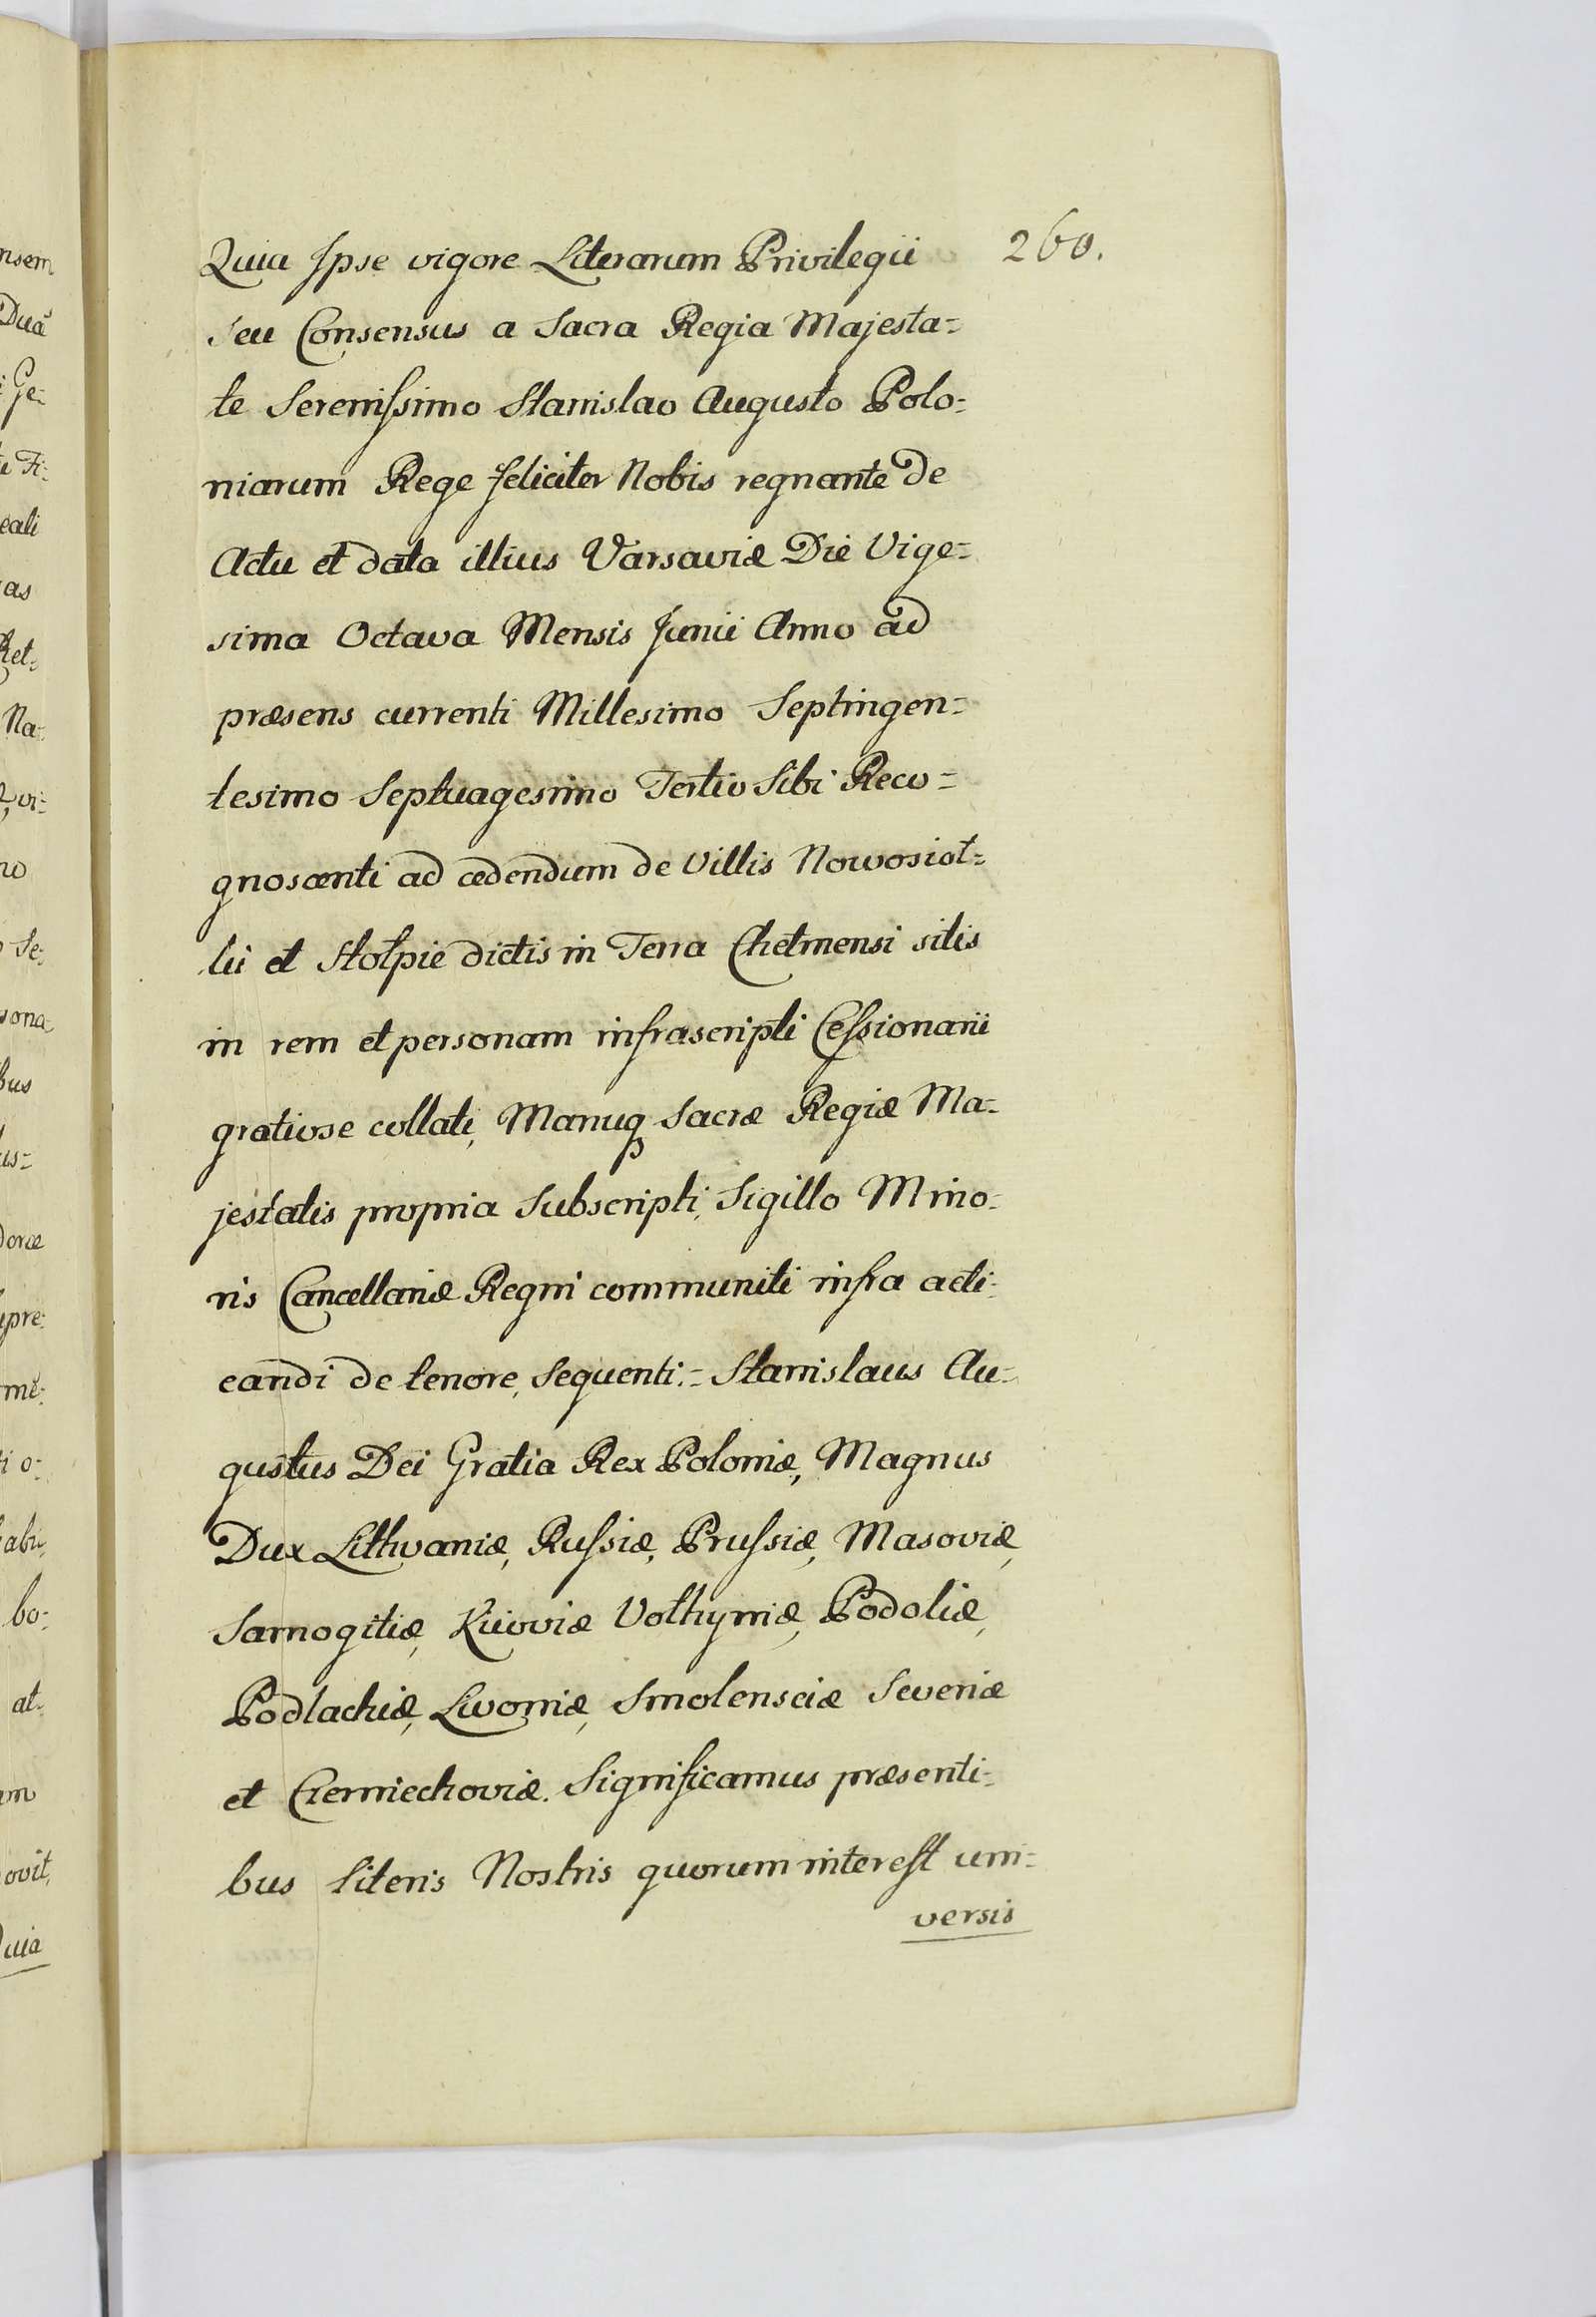 260.
Quia Ipse vigore Literarum Privilegii
seu Consensus a Sacra Regia Majesta=
te Serenissimo Stanislao Augusto Polo=
niarum Rege feliciter Nobis regnante de
Actu et data illius Varsaviæ Die Vige=
sima Octava Mensis Junii Anno ad
præsens currenti Millesimo Septingen=
tesimo Septuagesimo Tertio Sibi Reco=
gnoscenti ad cedendum de Villis Nowosioł=
ki et Stołpie dictis in Terra Chełmensi sitis
in rem et personam infrascripti Cessionarii
gratiose collati, Manuq Sacræ Regiæ Ma=
jestatis propria Subscripti, Sigillo Mino=
ris Cancellariæ Regni communiti infra acti=
candi de tenore, Sequenti:= Stanislaus Au=
gustus Dei Gratia Rex Poloniæ, Magnus
Dux Lithvaniæ, Russiæ, Prussiæ, Masoviæ,
Samogitiæ, Kiioviæ Volhyniæ, Podoliæ,
Podlachiæ, Livoniæ, Smolensciæ Severiæ
et Czerniechoviæ. Significamus præsenti=
bus literis Nostris quorum interest uni=
versis
nsem
Duã
Ge=
Fi=
eali
as
Ret=
Na=
vi=
no
Se=
sona=
bus
us=
doræ
mi=
i o=
bo=
at=
m
ovit,
uia